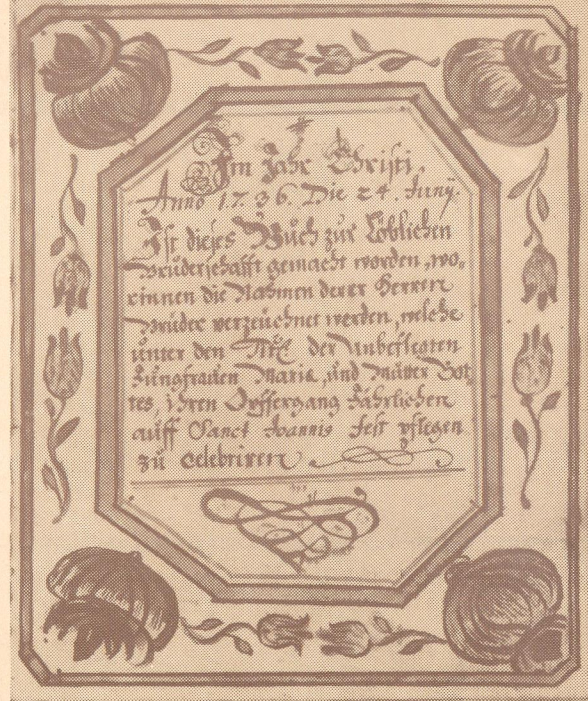 Im Jahr Christi,
Anno 1736. Die 24. Juny.
Ist dieses Buch zur Löblichen
Bruderschafft gemacht worden, wo,
rinnen die Nahmen derer Herren
Brüder verzeuchnet werden, welche
unter den Titl der Unbeflegten
Jungfrauen Maria, und Mutter Got,
tes, ihren Opffergang Jährlichen
auff Sanct Joannis Fest pflegen
zu celebriren